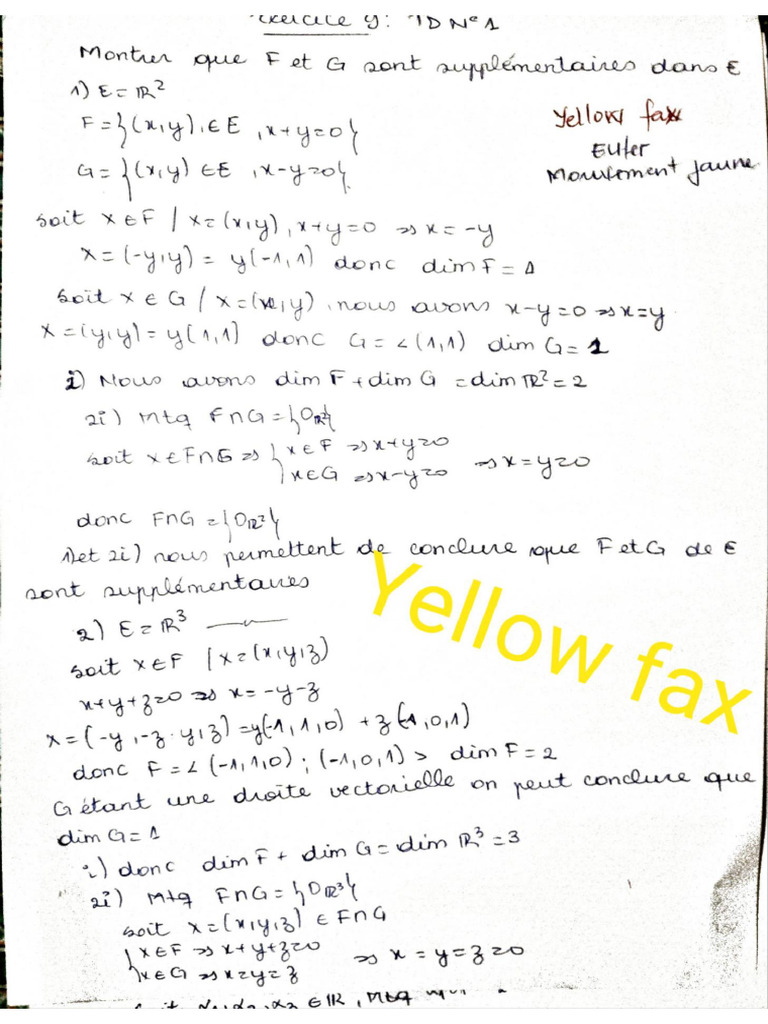 Exercice 9: TD N°1
Montrer que F et G sont supplémentaires dans E
1) E = ℝ²
F = {(x,y), ∈ E, x+y=0}
G = {(x,y) ∈ E, x-y=0}.
Yellow fax
Euler
Mouvement jaune
soit X ∈ F / X = (x,y), x+y=0 ⇒ x = -y
X = (-y,y) = y(-1,1) donc dim F = 1
soit X ∈ G / X = (x,y), nous avons x-y=0 ⇒ x=y
X = (y,y) = y(1,1) donc G = <(1,1) dim G = 1
i) Nous avons dim F + dim G = dim ℝ² = 2
2i) Mtq F∩G = {0ℝ²}
soit X ∈ F∩G ⇒ { X ∈ F ⇒ x+y=0
X ∈ G ⇒ x-y=0 ⇒ x=y=0
donc F∩G = {0ℝ²}
1) et 2i) nous permettent de conclure que F et G de E
sont supplémentaires
2) E = ℝ³
soit X ∈ F / X = (x,y,z)
x+y+z=0 ⇒ x = -y-z
X = (-y,-z y,z) = y(-1,1,0) + z(-1,0,1)
donc F = <(-1,1,0); (-1,0,1)> dim F = 2
G étant une droite vectorielle on peut conclure que
dim G = 1
i) donc dim F + dim G = dim ℝ³ = 3
2i) Mtq F∩G = {0ℝ³}
soit X = (x,y,z) ∈ F∩G
{ X ∈ F ⇒ x+y+z=0
X ∈ G ⇒ x=y=z ⇒ x = y = z = 0
∈ ℝ, Mtq
Yellow fax